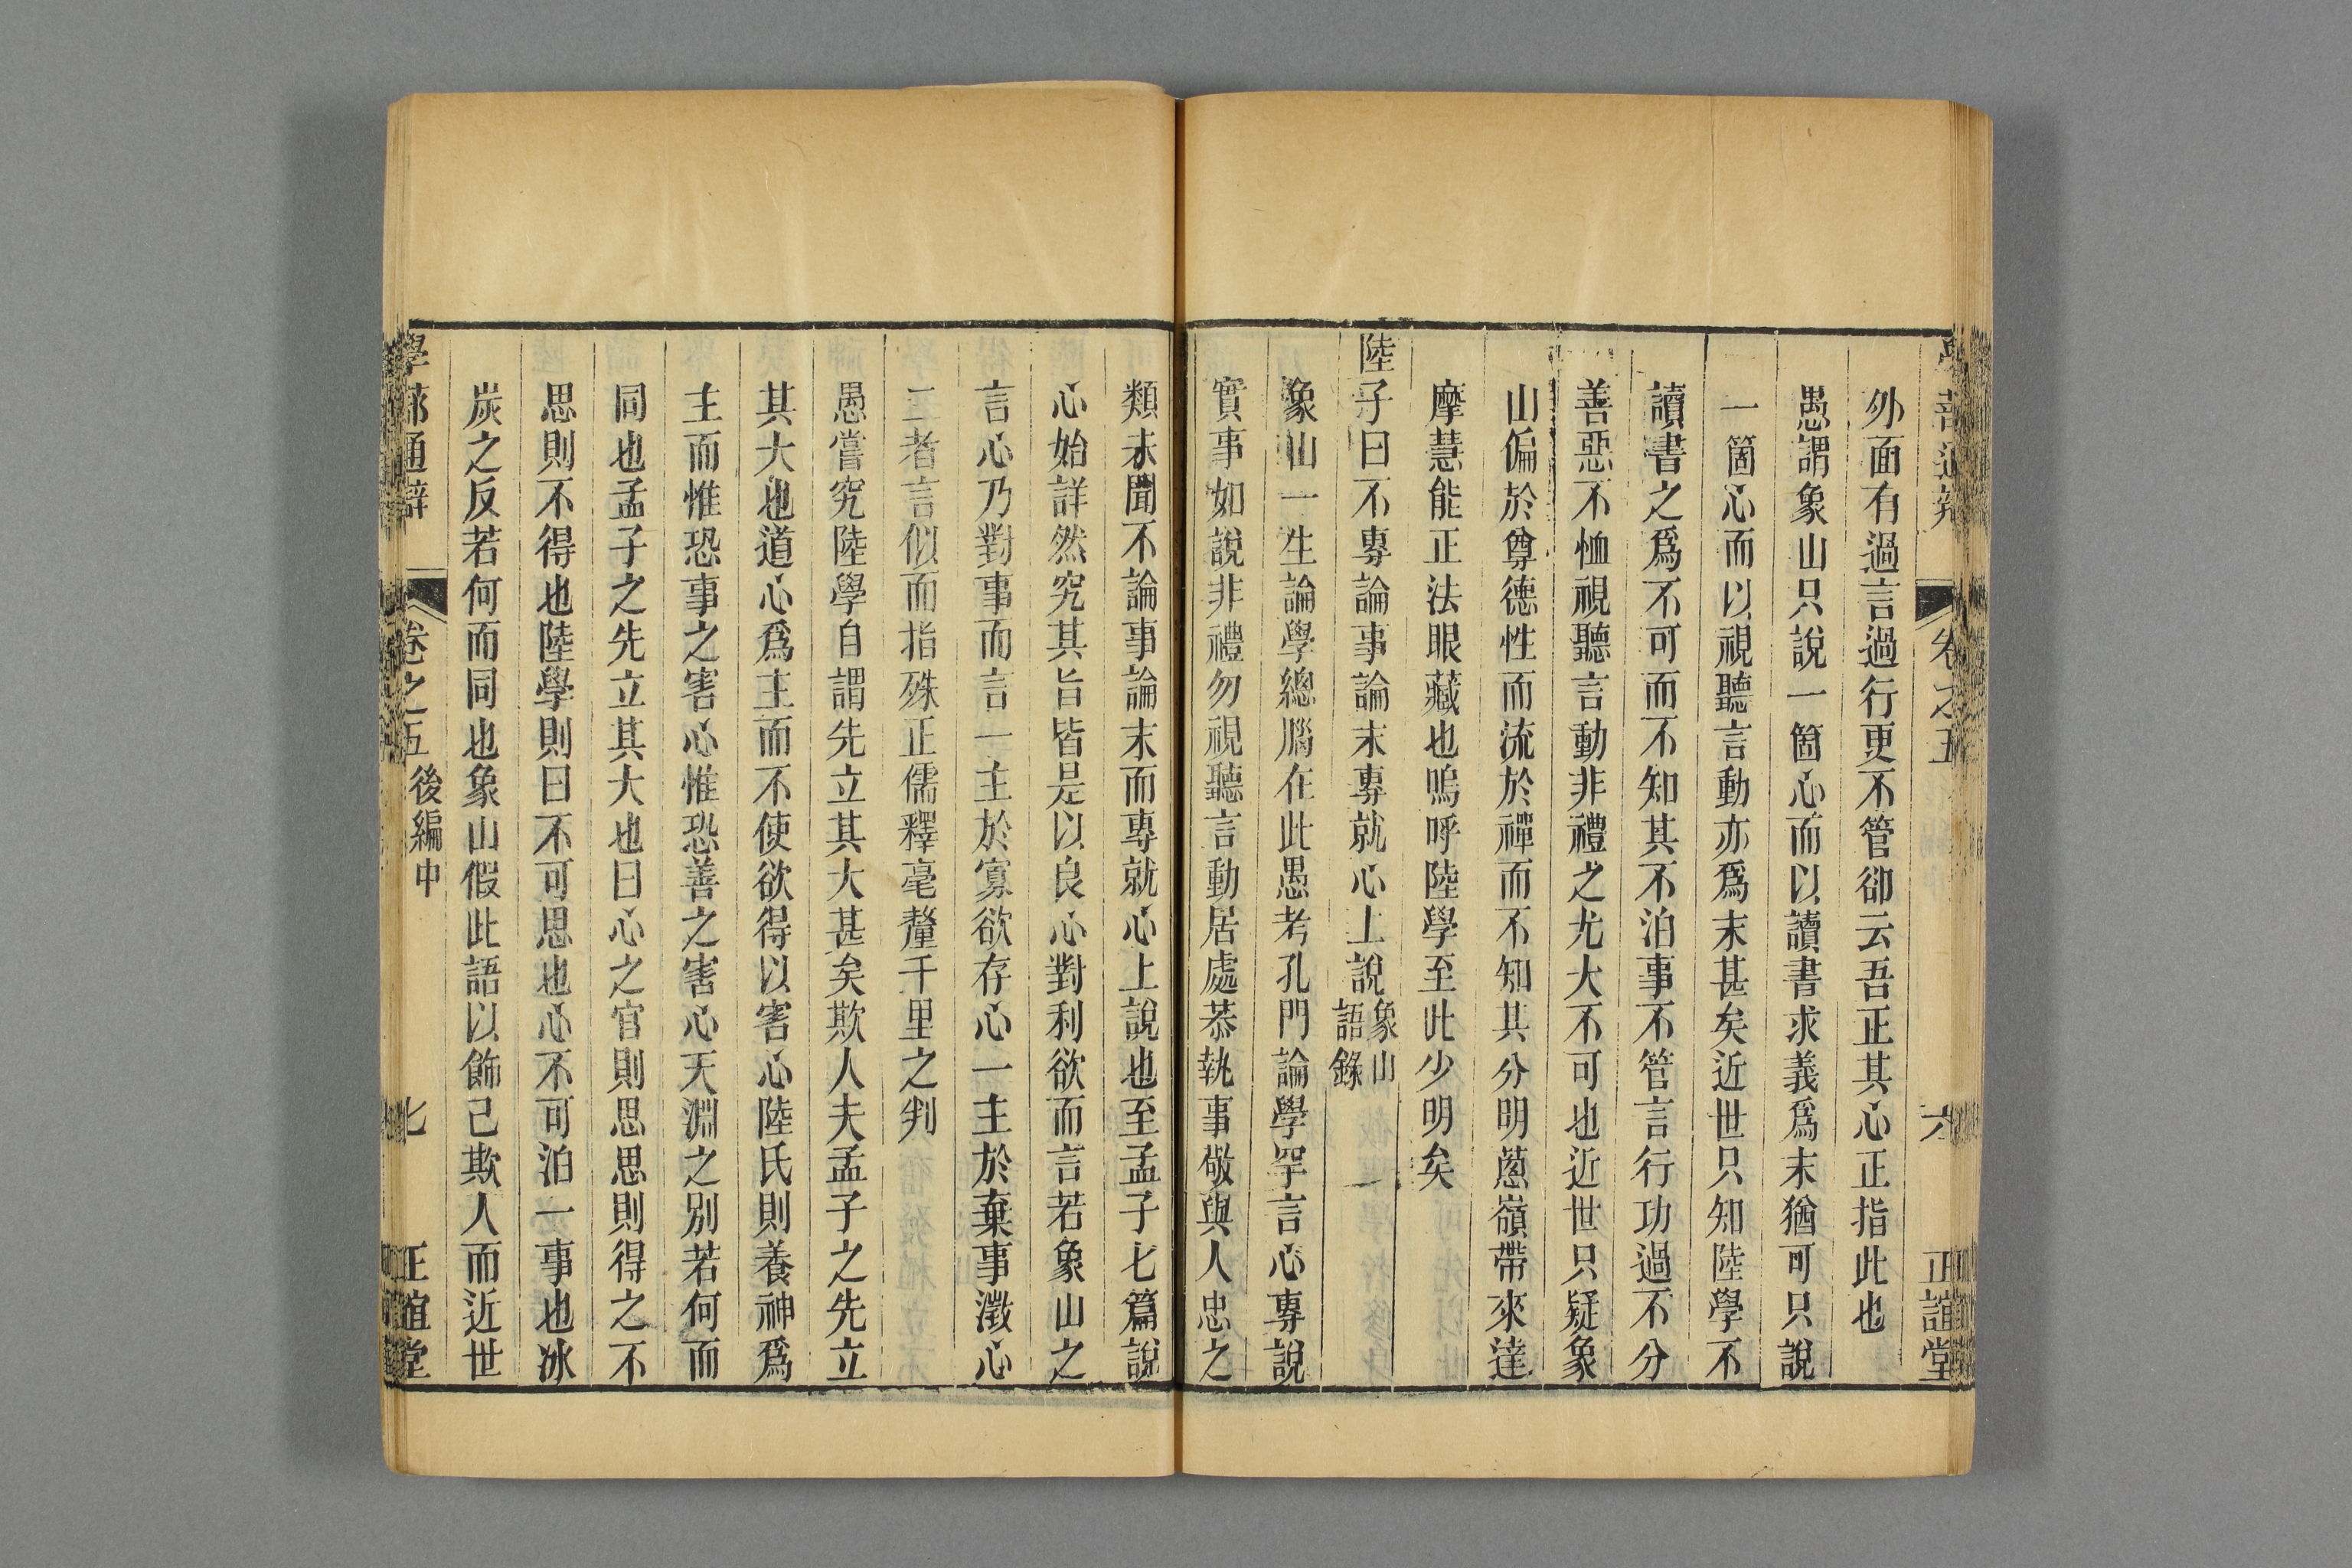 卷之五
六
正誼堂
外面有過言過行更不管卻云吾正其心正指此也
愚謂象山只說一箇心而以讀書求義爲末猶可只說
一箇心而以視聽言動亦爲末甚矣近世只知陸學不
讀書之爲不可而不知其不泊事不管言行功過不分
善惡不恤視聽言動非禮之尤大不可也近世只疑象
山偏於尊德性而流於禪而不知其分明蔥嶺帶來達
摩慧能正法眼藏也嗚呼陸學至此少明矣
陸子曰不專論事論末專就心上說象山語錄
象山一生論學總腦在此愚考孔門論學罕言心專說
實事如說非禮勿視聽言動居處恭執事敬與人忠之
類未聞不論事論末而專就心上說也至孟子七篇說
心始詳然究其旨皆是以良心對利欲而言若象山之
言心乃對事而言一主於寡欲存心一主於棄事澄心
二者言似而指殊正儒釋毫釐千里之判
愚嘗究陸學自謂先立其大甚矣欺人夫孟子之先立
其大也道心爲主而不使欲得以害心陸氏則養神爲
主而惟恐事之害心惟恐善之害心天淵之別若何而
同也孟子之先立其大也曰心之官則思思則得之不
思則不得也陸學則曰不可思也心不可泊一事也冰
炭之反若何而同也象山假此語以飾己欺人而近世
學蔀通辯
卷之五
後編中
七
正誼堂